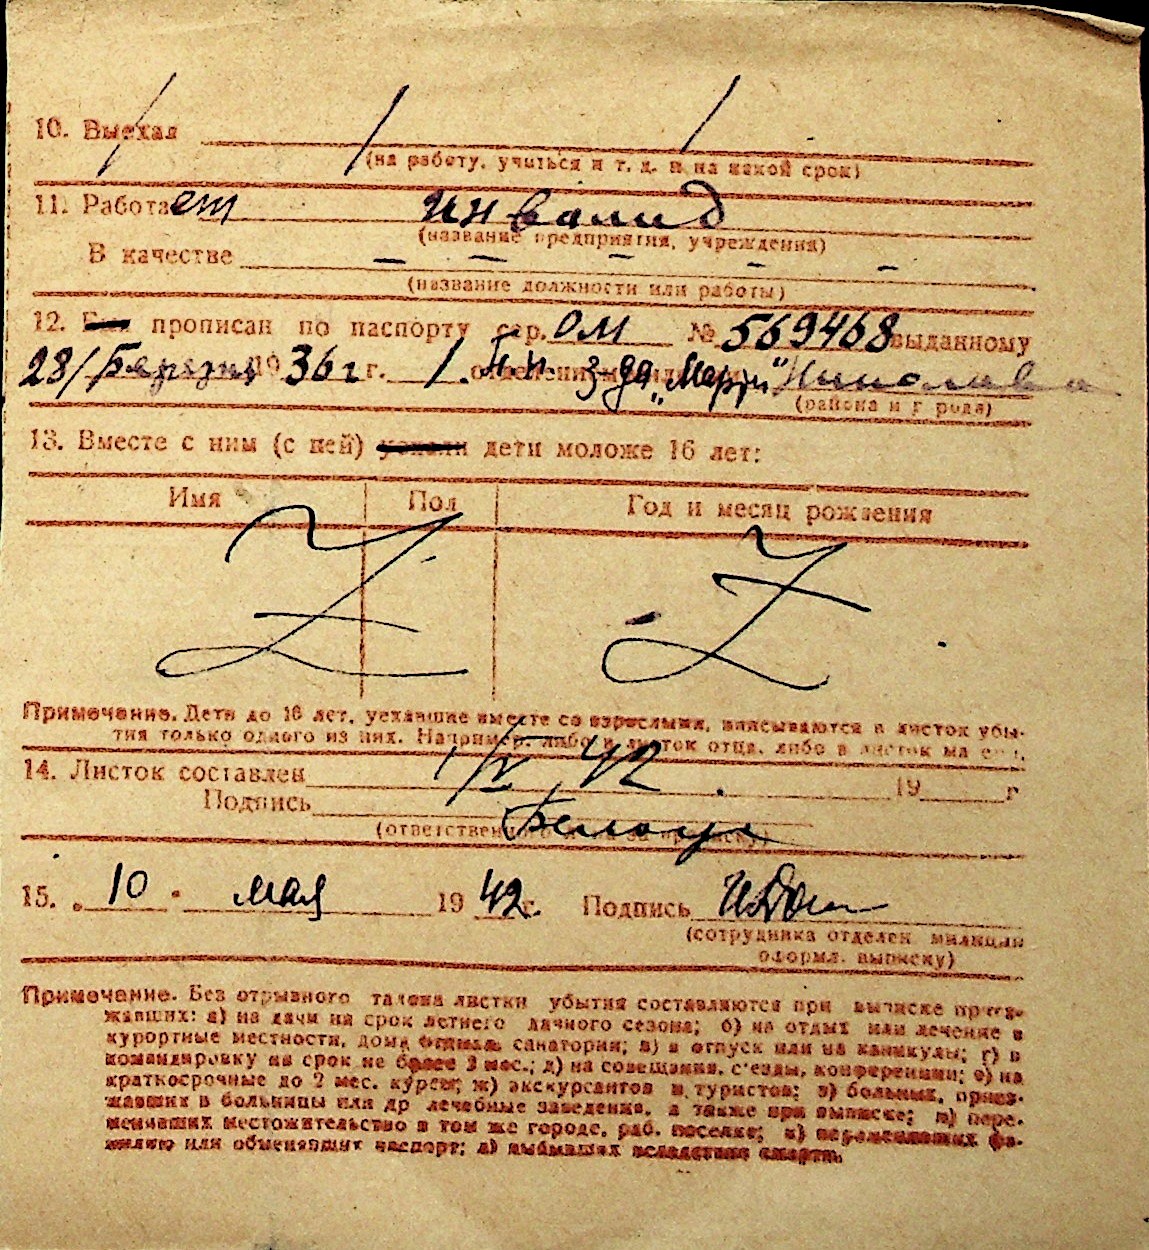 10. Выехал
(на работу, учиться и т. д. и на какой срок)
11. Работает инвалид
(название предприятия, учреждения)
В качестве — — — — —
(название должности или работы)
12. Был прописан по паспорту сер. ОМ № 569468 выданному
28/Березня 1936 г. г. 1. п.п. з-да „Марти" Николаева
(района и города)
13. Вместе с ним (с ней) уехали дети моложе 16 лет:
Имя Пол Год и месяц рождения
Z Z
Примечание. Дети до 16 лет, уехавшие вместе со взрослыми, вписываются в листок убы-
тия только одного из них. Например: либо в листок отца, либо в листок
14. Листок составлен 1/V 42. 19 г
Подпись
15. „10" мая 1942 г. Подпись
(сотрудника отделен. милиции
оформл. выписку)
Примечание. Без отрывного талона листки убытия составляются при выписке приез-
жавших: а) на дачи на срок летнего дачного сезона; б) на отдых или лечение в
курортные местности, дома отдыха, санатории; в) в отпуск или на каникулы; г) в
командировку на срок не более 2 мес.; д) на совещания, с'езды, конференции; е) на
краткосрочные до 2 мес. курсы; ж) экскурсантов и туристов; з) больных, приез-
жавших в больницы или др лечебные заведения, а также при выписке; и) пере-
менивших местожительство в том же городе, раб. поселке; к) переменивших фа-
милию или обменявших паспорт; л) выбывших вследствие смерти.